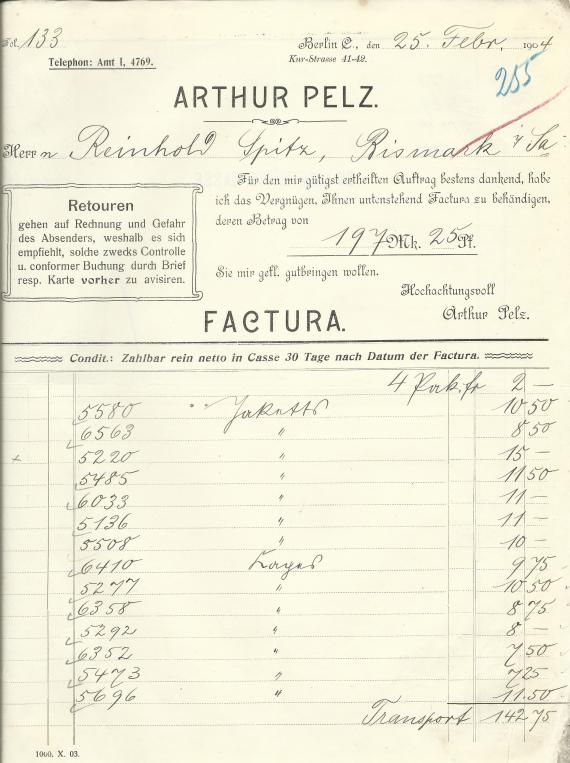 Fol. 133
Telephon: Amt I, 4769.
Berlin C., den 25. Febr. 1904
Kur-Strasse 41-42.
255
ARTHUR PELZ.
Herrn Reinhold Spitz, Bismark i/Sa
Für den mir gütigst ertheilten Auftrag bestens dankend, habe
ich das Vergnügen, Ihnen untenstehend Factura zu behändigen,
deren Betrag von
197 Mk. 25 Pf.
Sie mir gefl. gutbringen wollen.
Hochachtungsvoll
Arthur Pelz.
Retouren
gehen auf Rechnung und Gefahr
des Absenders, weshalb es sich
empfiehlt, solche zwecks Controlle
u. conformer Buchung durch Brief
resp. Karte vorher zu avisiren.
FACTURA.
Condit.: Zahlbar rein netto in Casse 30 Tage nach Datum der Factura.
4 2 —
5580 Jaketts 10 50
6563 " 8 50
5220 " 15 —
5485 " 11 50
6033 " 11 —
5136 " 11 —
5508 " 10 —
6410 9 75
5277 " 10 50
6358 " 8 75
5292 " 8 —
6352 " 7 50
5473 " 7 25
5696 " 11.50
Transport 142 75
1000. X. 03.